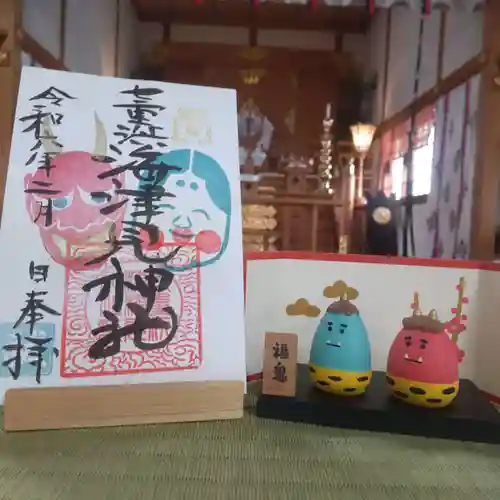 七重浜海津見神社
令和八年二月
日奉拝
福鬼